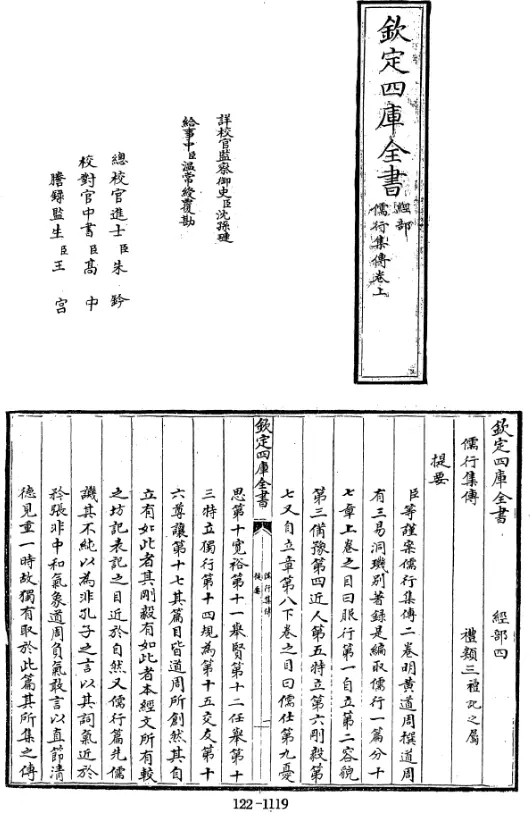 欽定四庫全書
經部
儒行集傳卷上
詳校官監察御史臣沈孫璉
給事中臣溫常綬覆勘
總校官進士臣朱鈐
校對官中書臣高中
謄錄監生臣王宫
欽定四庫全書
經部四
儒行集傳
禮類三禮記之屬
提要
臣等謹案儒行集傳二卷明黃道周撰道周
有三易洞璣別著錄是編取儒行一篇分十
七章上卷之目曰服行第一自立第二容貌
第三備豫第四近人第五特立第六剛毅第
七又自立章第八下卷之目曰儒仕第九憂
欽定四庫全書
儒行集傳
提要
一
思第十寛裕第十一舉賢第十二任舉第十
三特立獨行第十四規為第十五交友第十
六尊讓第十七其篇目皆道周所創然其自
立有如此者其剛毅有如此者本經文所有較
之坊記表記之目近於自然又儒行篇先儒
譏其不純以為非孔子之言以其詞氣近於
矜張非中和氣象道周負氣敢言以直節清
德見重一時故獨有取於此篇其所集之傳
122-1119